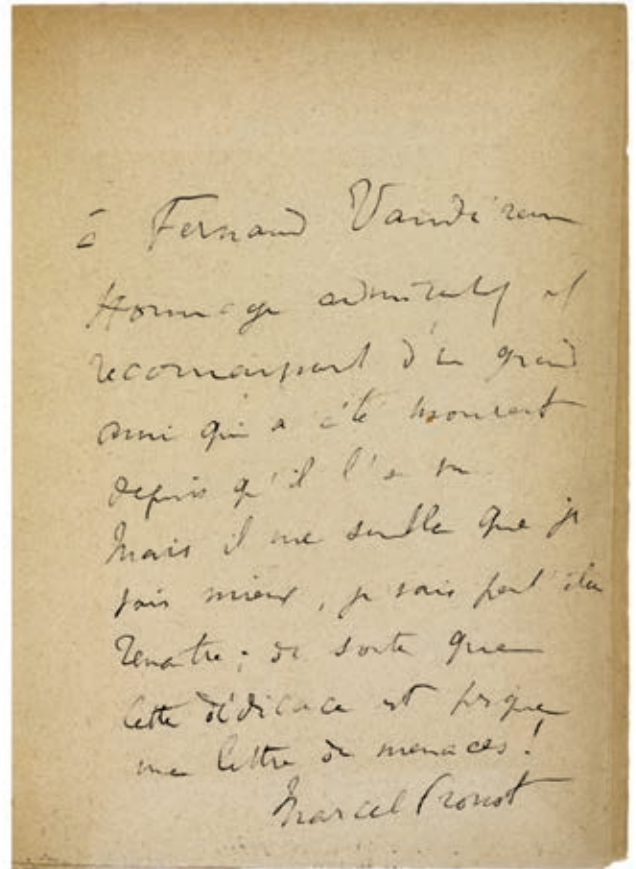 à Fernand Vandérem
Hommage admiratif et
reconnaissant d'un grand
ami qui a été mourant
depuis qu'il l'a vu
Mais il me semble que je
suis mieux, je vais peut être
renaitre ; de sorte que
cette dédicace est presque
une lettre de menaces !
Marcel Proust